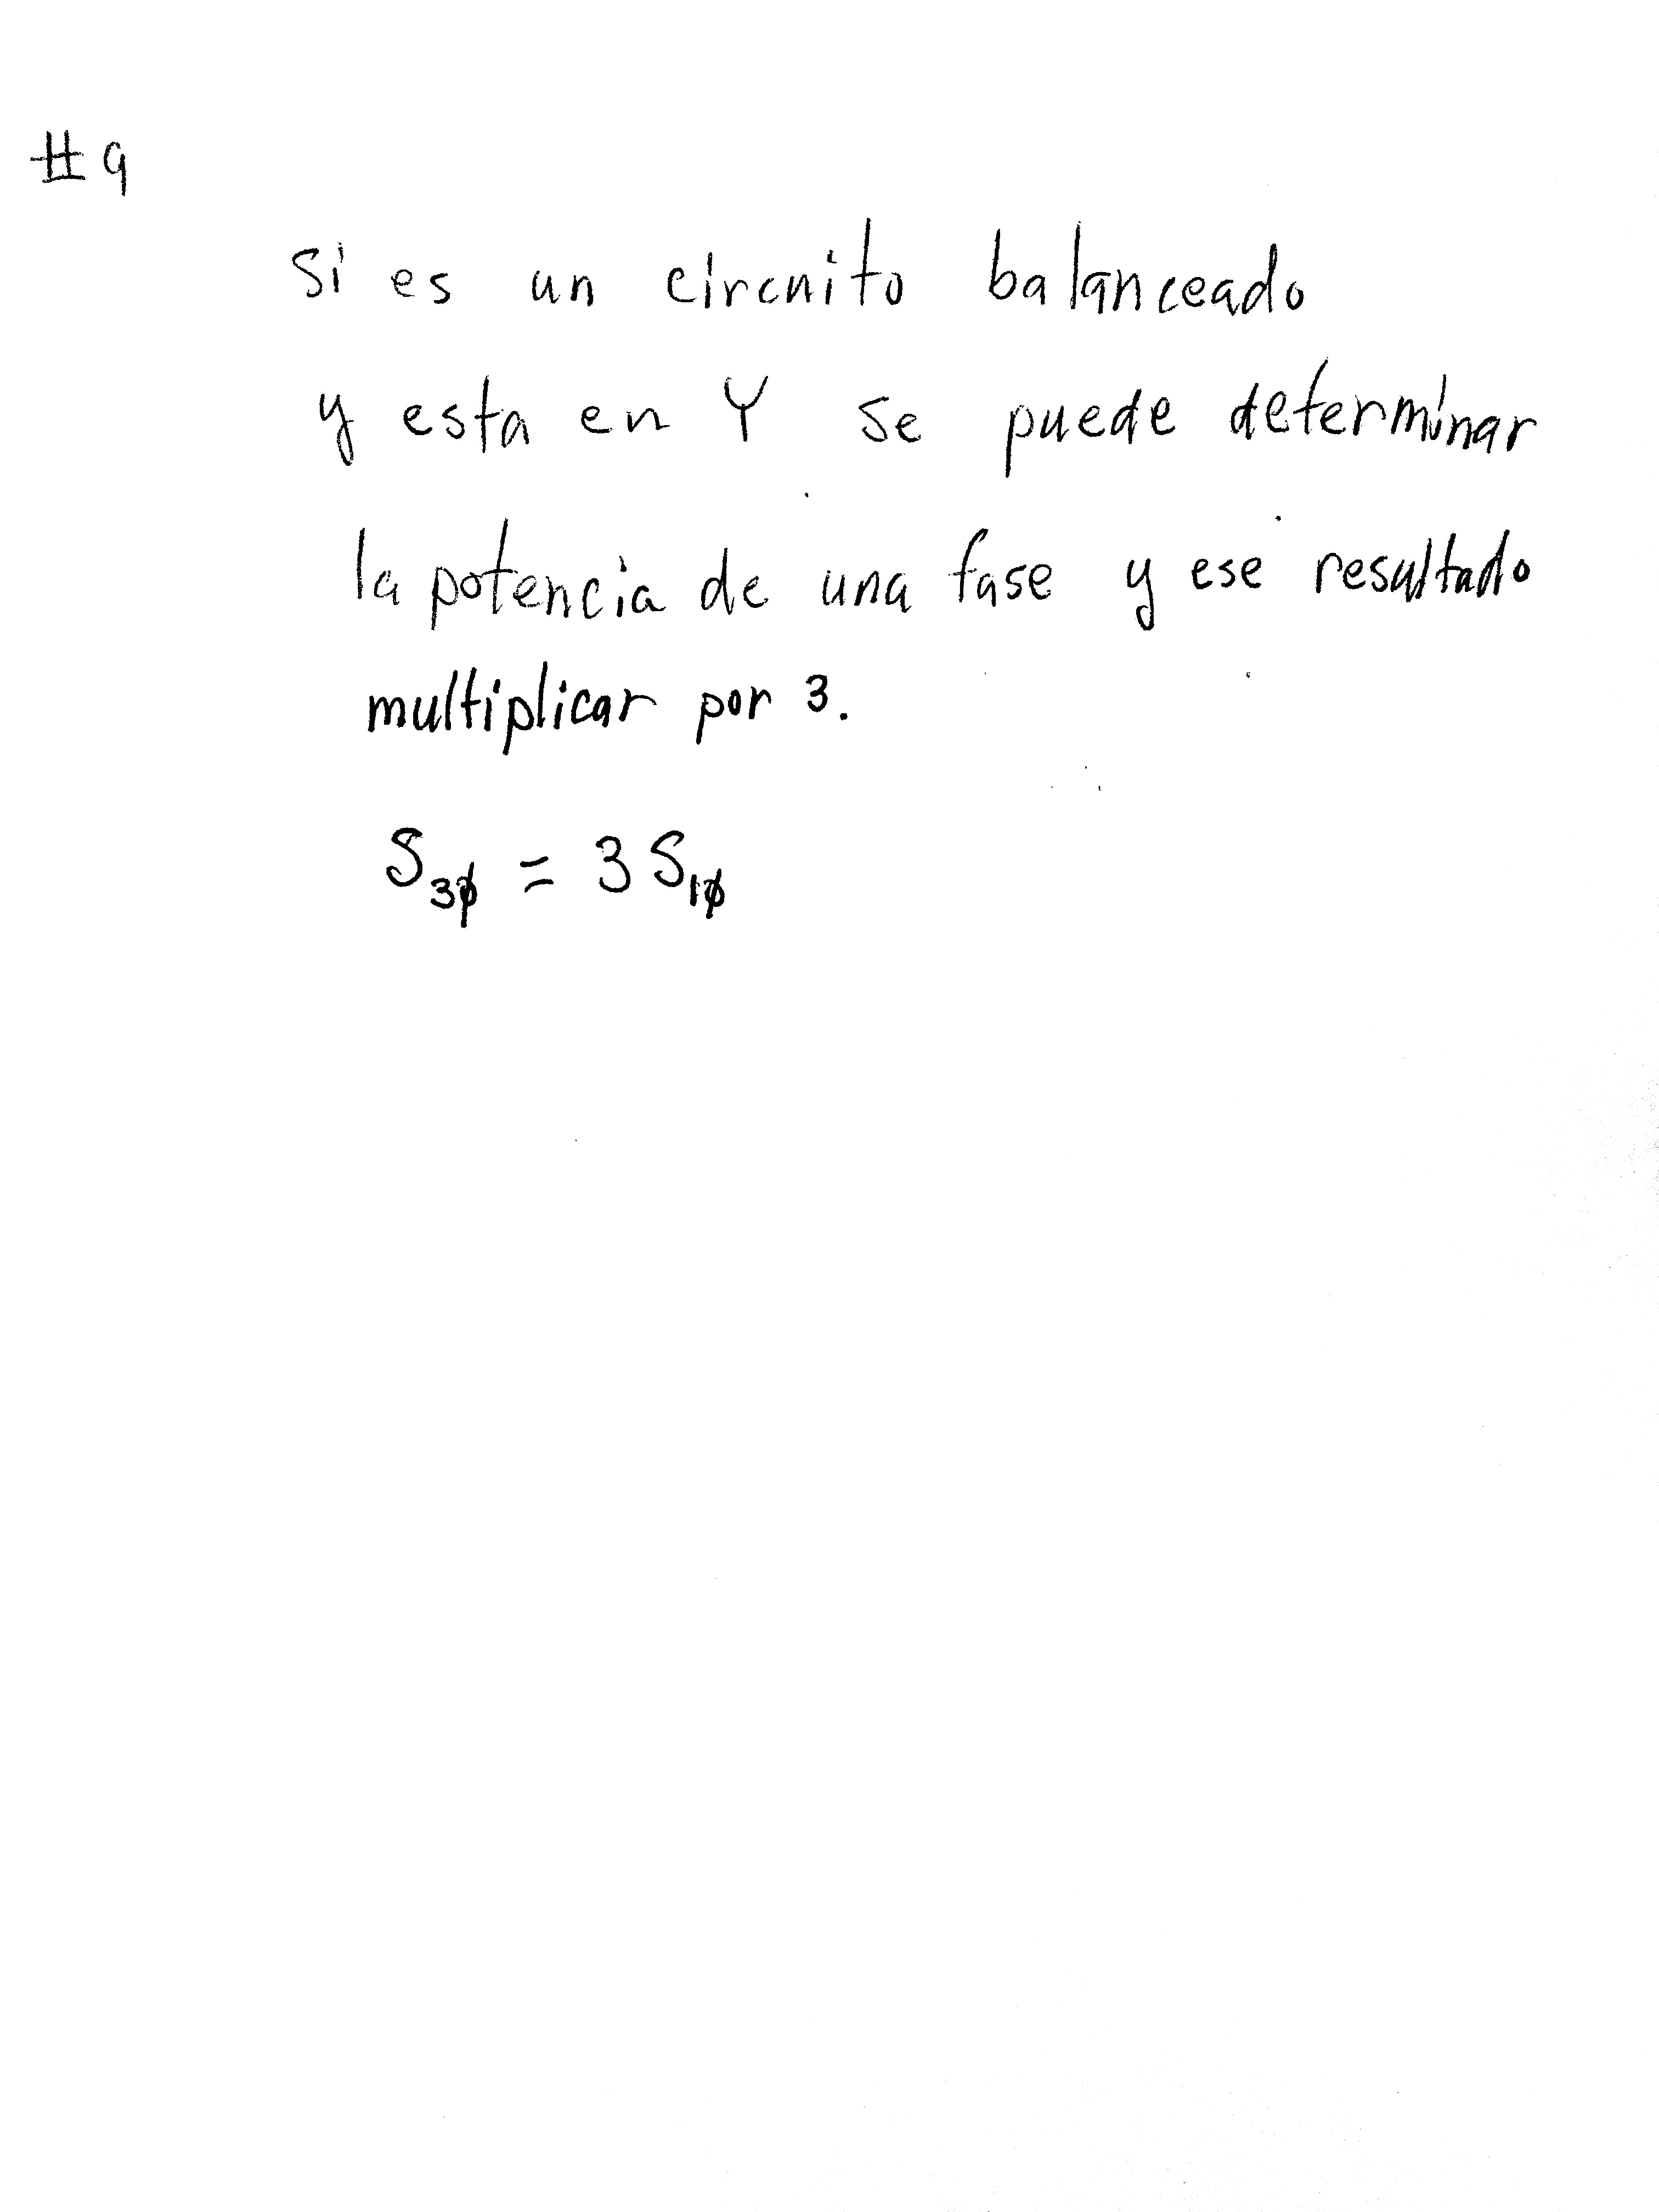 #9
Si es un circuito balanceado
y esta en Y se puede determinar
la potencia de una fase y ese resultado
multiplicar por 3.
S₃ϕ = 3 S₁ϕ